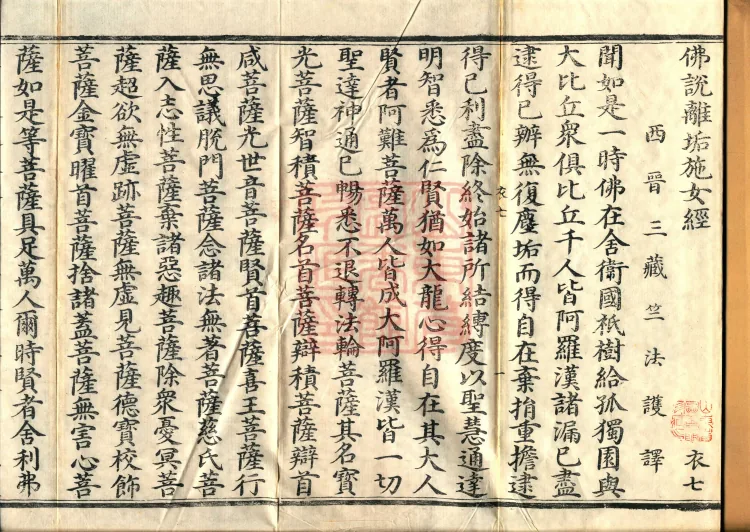 佛說離垢施女經 衣七
西晉三藏竺法護譯
聞如是一時佛在舍衞國祇樹給孤獨園與
大比丘衆俱比丘千人皆阿羅漢諸漏已盡
逮得已辨無復塵垢而得自在棄捐重擔逮
得已利盡除終始諸所結縛度以聖慧通達
明智悉爲仁賢猶如大龍心得自在其大人
賢者阿難菩薩萬人皆成大阿羅漢皆一切
聖達神通已暢悉不退轉法輪菩薩其名寶
光菩薩智積菩薩名首菩薩辯積菩薩辯首
衣七 一
咸菩薩光世音菩薩賢首菩薩喜王菩薩行
無思議脫門菩薩念諸法無著菩薩慈氏菩
薩入志性菩薩棄諸惡趣菩薩除衆憂冥菩
薩超欲無虛跡菩薩無虛見菩薩德寶校飾
菩薩金寶曜首菩薩捨諸蓋菩薩無害心菩
薩如是等菩薩具足萬人爾時賢者舍利弗